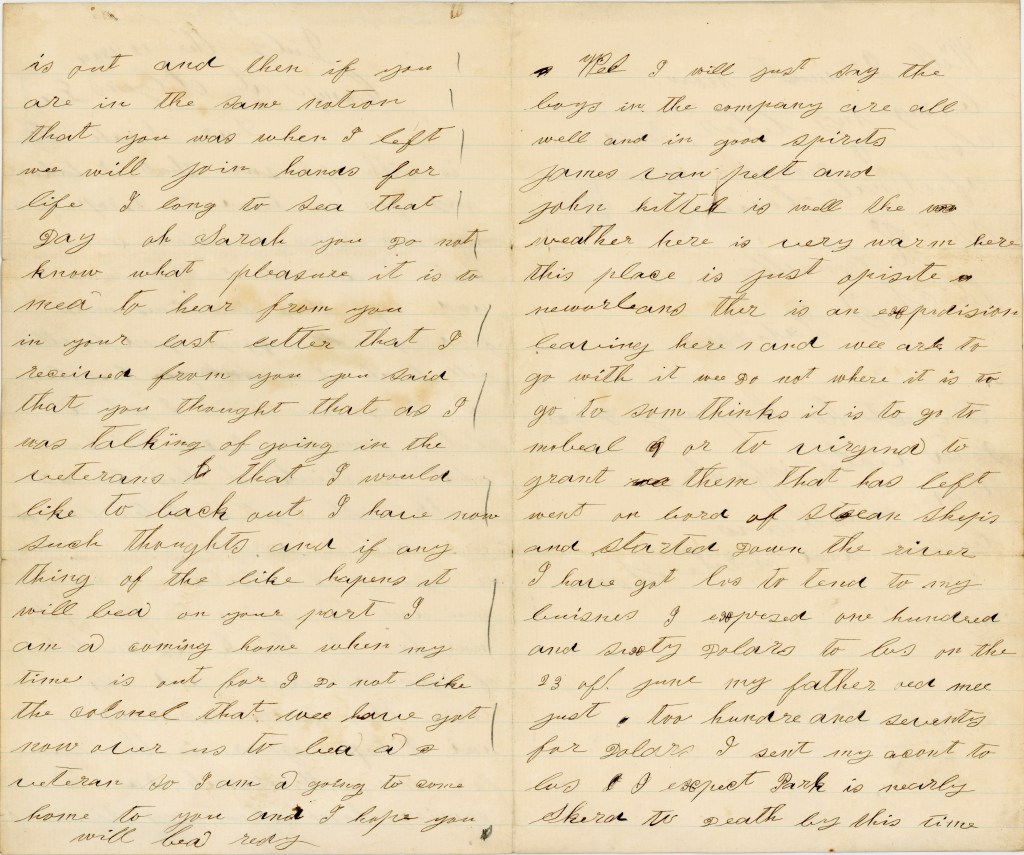 is out and then if you
are in the same notion
that you was when I left
wee will join hands for
life I long to sea that
Day oh Sarah you Do not
know what pleasure it is to
mea to hear from you
in your last letter that I
received from you you said
that you thought that as I
was talking of going in the
veterans that I would
like to back out I have now
such thoughts and if any
thing of the like hapens it
will bea on your part I
am a coming home when my
time is out for I Do not like
the colonel that wee have got
now over us to bea a
veteran so I am a going to come
home to you and I hope you
will bea redy
Wel I will just say the
boys in the company are all
well and in good spirits
james van pelt and
john kittel is well the
weather here is very warm here
this place is just opisite
neworleans ther is an expedision
leaving here and wee are to
go with it wee Do not where it is to
go to som thinks it is to go to
mobeal or to virgina to
grant them that has left
went on bord of stean ships
and started Down the river
I have got lus to tend to my
buisnes I expresed one hundred
and sixty Dolars to lus on the
23 of june my father oed mee
just too hundre and seventy
for Dolars I sent my acont to
lus I expect Park is nearly
skerd to Death by this time